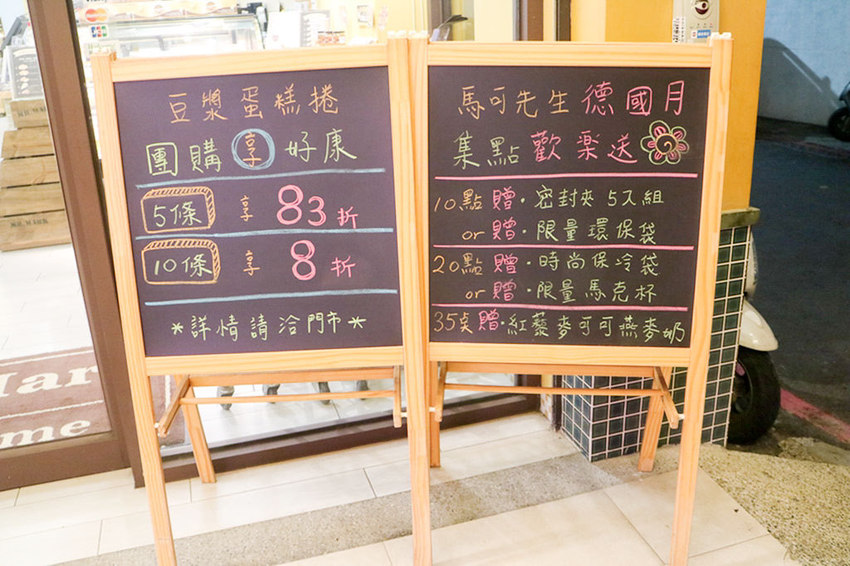 豆漿蛋糕捲
團購享好康
5條 享 83折
10條 享 8折
*詳情請洽門市*
馬可先生德國月
集點歡樂送
10點贈·密封夾5入組
or贈·限量環保袋
20點贈·時尚保冷袋
or贈·限量馬克杯
35点贈·紅藜麥可可燕麥奶
Mar
me